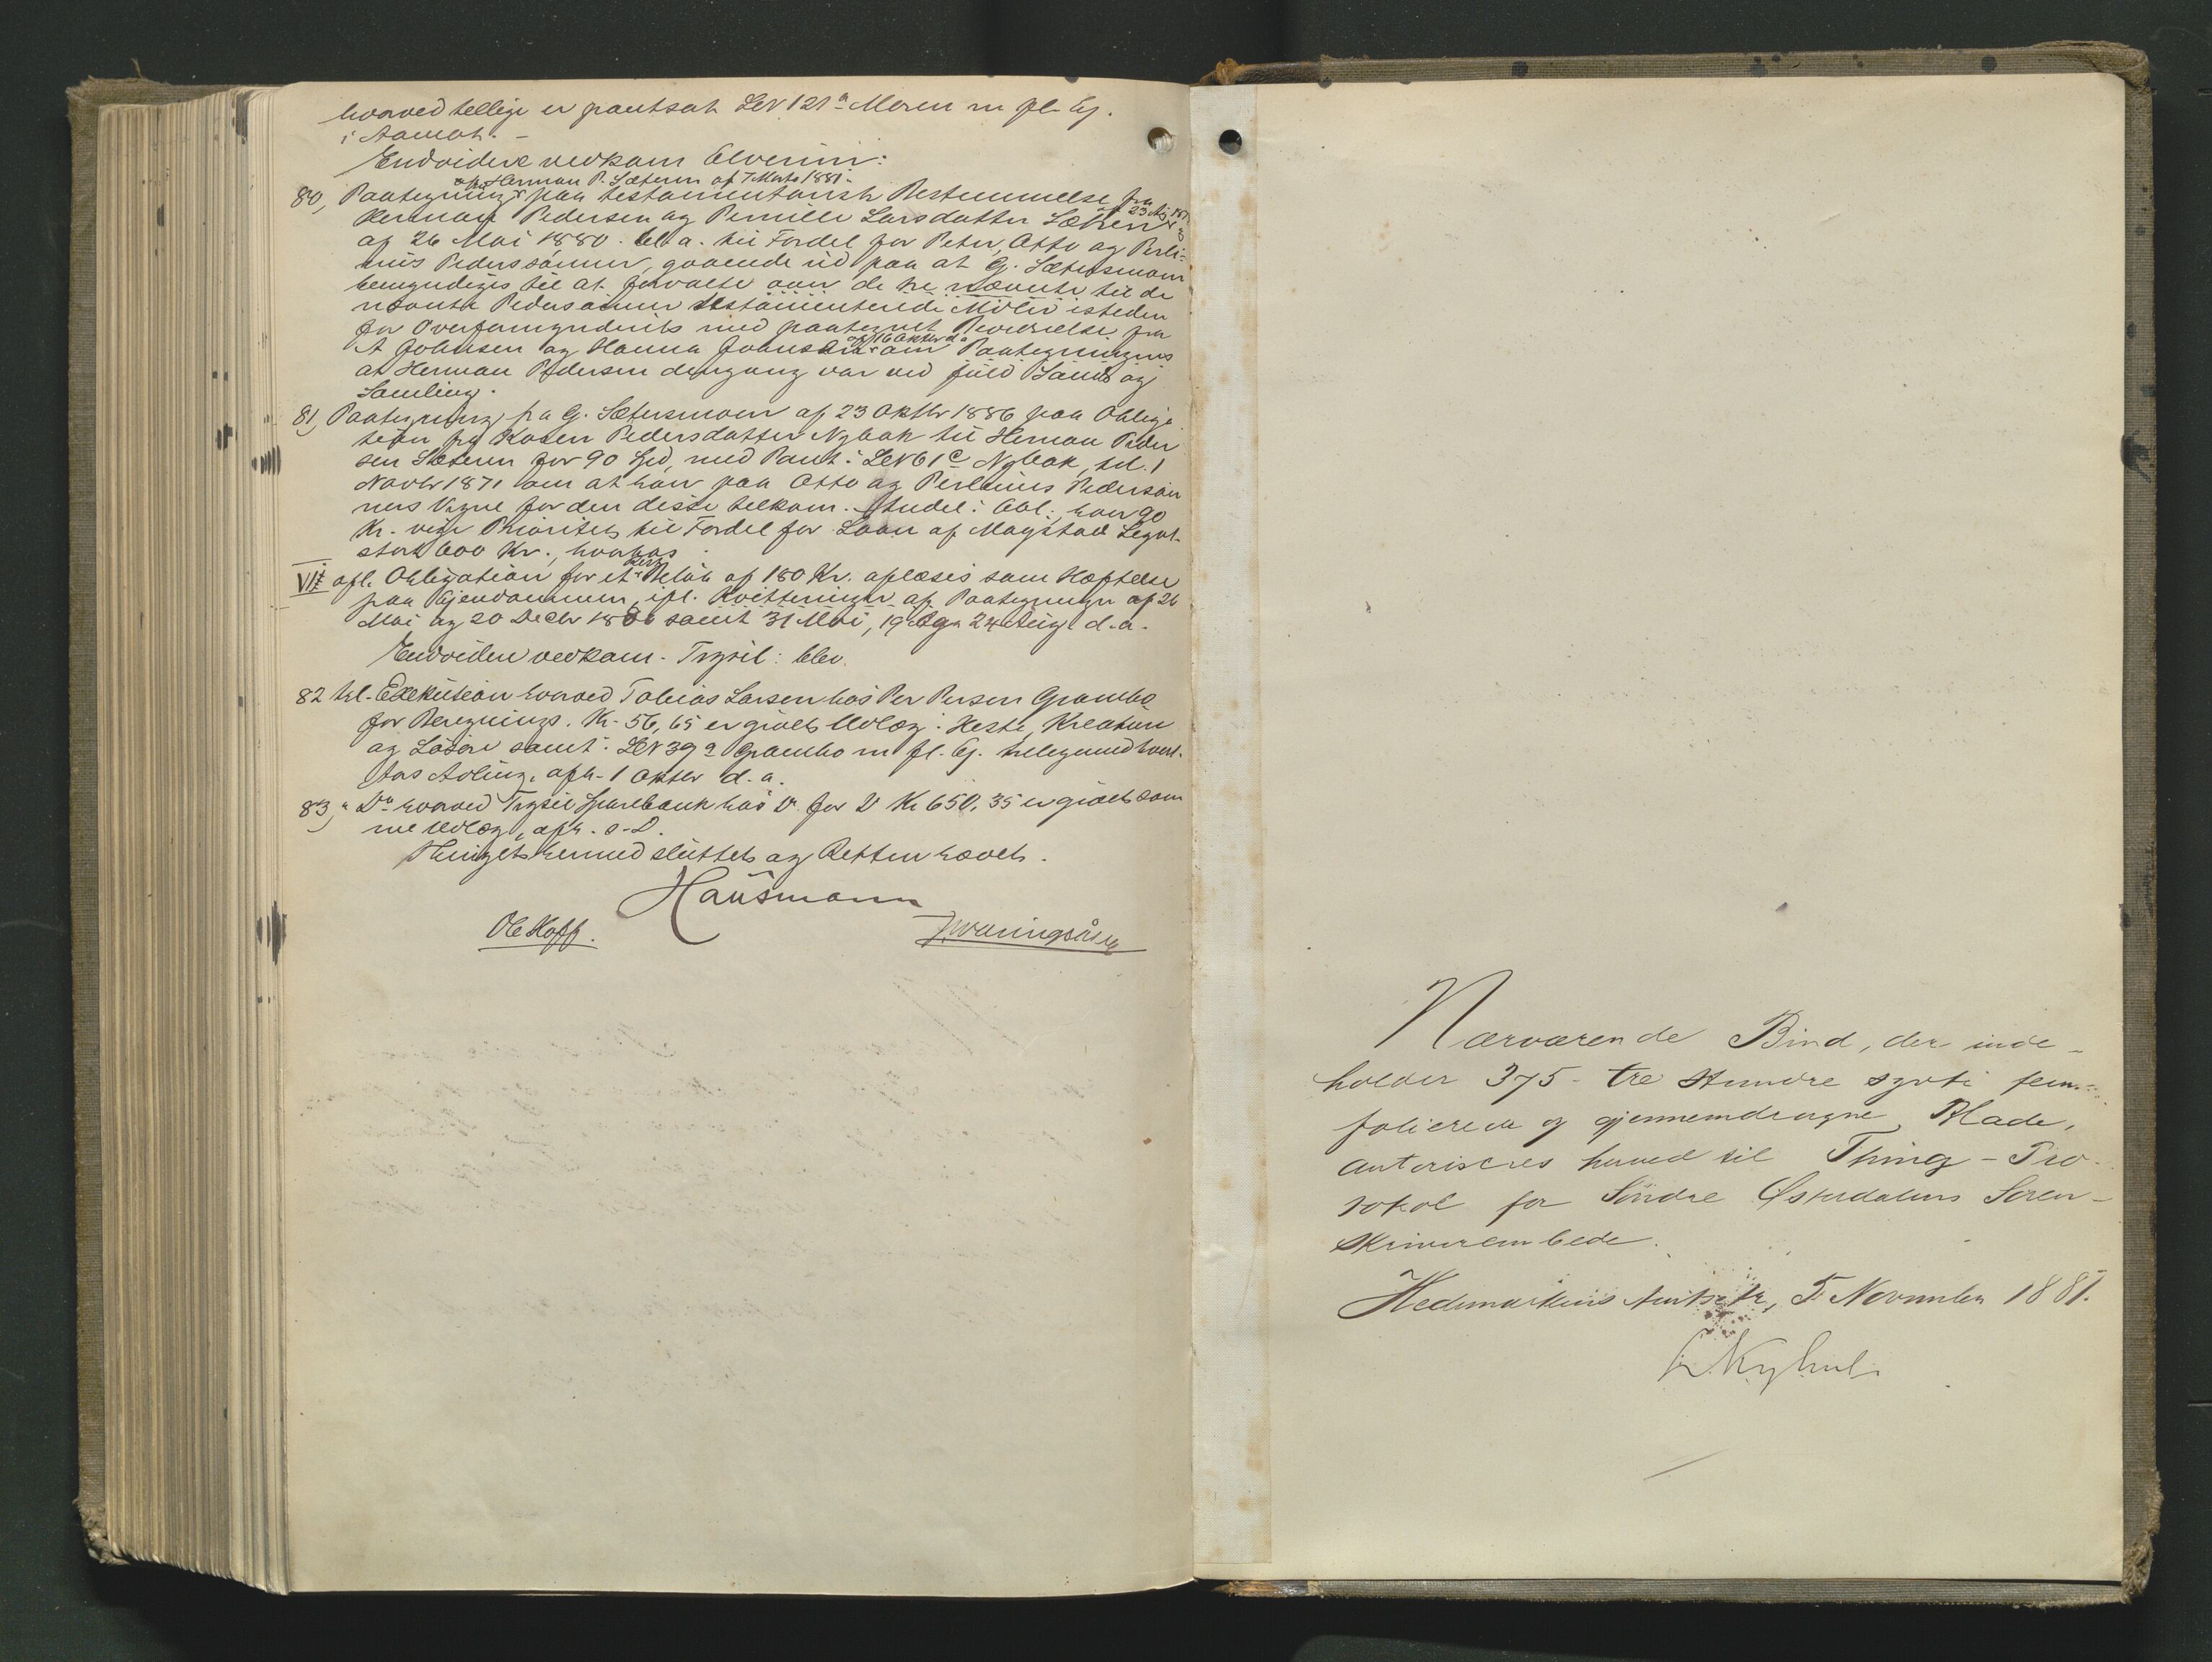 hvorved tillige er pantsat LN 121 a Moren m fl. Ej.
i Aamot. -
Endvidere vedkom Elverum:
af Herman P. Sæteren af 7 Marts 1881.
80, Paategning paa testamentarisk Bestemmelse fra
Herman Pedersen og Pernille Larsdatter Sæteren
af 26 Mai 1880. bl. a. til Fordel for Peter, Otto og Perli-
nus Pederssønner, gaaende ud paa at G. Sætersmoen
bemyndiges til at forvalte over de tre nævnte til de
nævnte Pedersønner testamenterede Midler isteden
for Overformynderiet med paategnet Bevidnelse fra
A Johnsen og Hanna Johnsen af 16 Oktbr d. a. om Paategningens
at Herman Pedersen dengang var ved fuld Sands og
Samling.
81, Paategning fra G. Sætersmoen af 23 Oktbr 1886 paa Obliga
tion fra Karen Pedersdatter Nybak til Herman Peder
sen Sæteren for 90 Spd, med Pant i LN 61 c Nybak, tel. 1
Novbr 1871 om at han paa Otto og Perlinus Pedersøn
ners Vegne for den disse tilkom. Andel i Obl. hver 90
Kr. viger Prioritet til Fordel for Laan af Magstad Legat
stort 600 Kr., hvorhos
VII afl. Obligation for et Beløb af 180 Kr. aflæses som Hæftelse
paa Ejendommen, ifl. Kvitteringer af Paategninger af 26
Mai og 20 Decbr 1886 samt 31 Mai, 19 Aug 24 Aug d. a.
Endvidere vedkom. Trysil: blev
82 tel. Exekution hvorved Tobias Larsen hos Per Persen Grambo
for Beregnings. Kr. 56,65 er gjort Udlæg i Heste, Kreature
og Løsøre samt i LN 39 a Grambo m fl. Ej. tilligemed hvert
Aars Avling, afh. 1 Oktbr d. a.
83, " Do hvorved Trysil Sparebank hos Do for Do Kr 650,35 er gjort sam
me Udlæg, afh. s. D.
Thinget hermed sluttet og Retten hævet.
Hausmann
Ole Hoff.
Nærværende Bind, der inde-
holder 375 - tre Hundre sytti fem -
folierede og gjennemdragne Blade,
autoriseres herved til Thing-Pro-
tokol for Søndre Østerdalens Soren-
skriverembede.
Hedemarkens Amt, 5 November 1881.